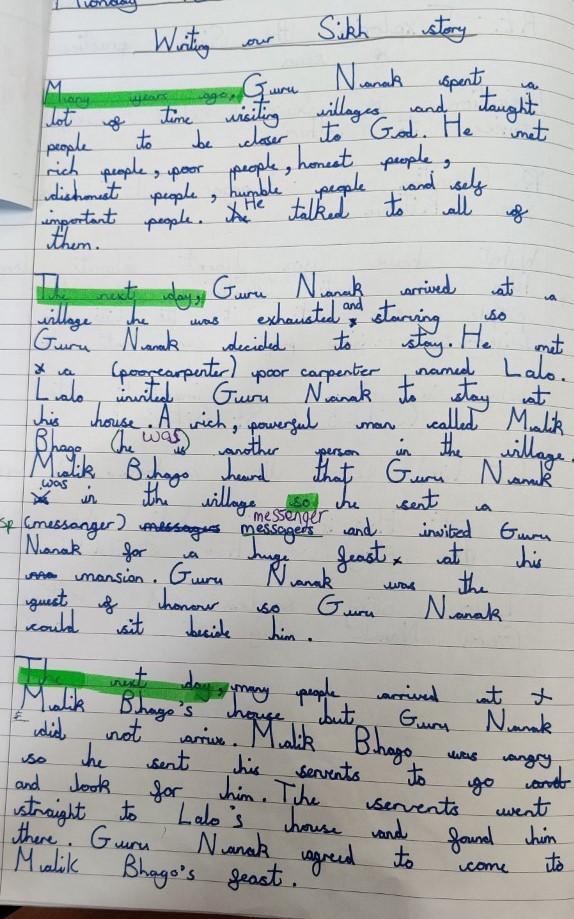 Monday
Writing our Sikh story
Many years ago, Guru Nanak spent a
lot of time visiting villages and taught
people to be closer to God. He met
rich people, poor people, honest people,
dishonest people, humble people and self
important people. He talked to all of
them.
The next day, Guru Nanak arrived at a
village he was exhausted and starving so
Guru Nanak decided to stay. He met
a (poorcarpenter) poor carpenter named Lalo.
Lalo invited Guru Nanak to stay at
his house. A rich, powerful man called Malik
Bhago (he was) is another person in the village.
Malik Bhago heard that Guru Nanak
was in the village so he sent a
sp (messanger) messagers messagers messenger and invited Guru
Nanak for a huge feast at his
mansion. Guru Nanak was the
guest of honour so Guru Nanak
could sit beside him.
The next day, many people arrived at
Malik Bhago's house but Guru Nanak
did not arrive. Malik Bhago was angry
so he sent his servents to go and
and look for him. The servents went
straight to Lalo's house and found him
there. Guru Nanak agreed to come to
Malik Bhago's feast.